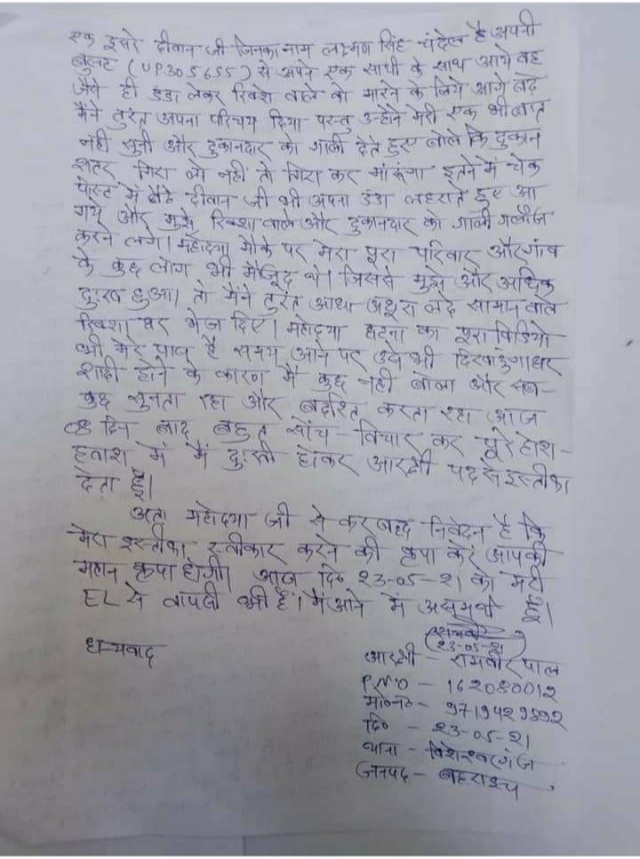 एक दूसरे दीवान जी जिनका नाम लक्ष्मण सिंह चंदेल है अपनी
बुलट (UP30S6555) से अपने एक साथी के साथ आये वह
जैसे ही डंडा लेकर रिक्शे वाले को मारने के लिये आगे बढ़े
मैंने तुरंत अपना परिचय दिया परन्तु उन्होंने मेरी एक भी बात
नहीं सुनी और दुकानदार को गाली देते हुए बोले कि दुकान
शटर गिरा लो नहीं तो गिरा कर मारूंगा इतने में चेक
पोस्ट में बैठे दीवान जी भी अपना डंडा लहराते हुए आ
गये और मुझे रिक्शा वाले और दुकानदार को गाली गलौज
करने लगे। महोदया मौके पर मेरा पूरा परिवार और गांव
के कुछ लोग भी मौजूद थे। जिससे मुझे और अधिक
दुःख हुआ। तो मैंने तुरंत आधा अधूरा लदे सामान वाले
रिक्शा घर भेज दिए। महोदया घटना का पूरा विडियो
भी मेरे पास है समय आने पर उसे भी दिखाऊंगा घर
शादी होने के कारण मैं कुछ नहीं बोला और सब-
कुछ सुनता रहा और बर्दाश्त करता रहा आज
08 दिन बाद बहुत सोंच-विचार कर पूरे होश-
हवाश में मैं दुःखी होकर आरक्षी पद से इस्तीफा
देता हूँ।
अतः महोदया जी से कर बद्ध निवेदन है कि
मेरा इस्तीफा स्वीकार करने की कृपा करें आपकी
महान कृपा होगी। आज दि० 23-05-21 को मेरी
EL से वापसी भी है। मैं आने में असमर्थ हूँ।
धन्यवाद
23-05-21
आरक्षी - रामवीर पाल
P.N.O - 162080012
मो०नं० - 9719429892
दि० - 23-05-21
थाना - विशेश्वरगंज
जनपद - बहराइच